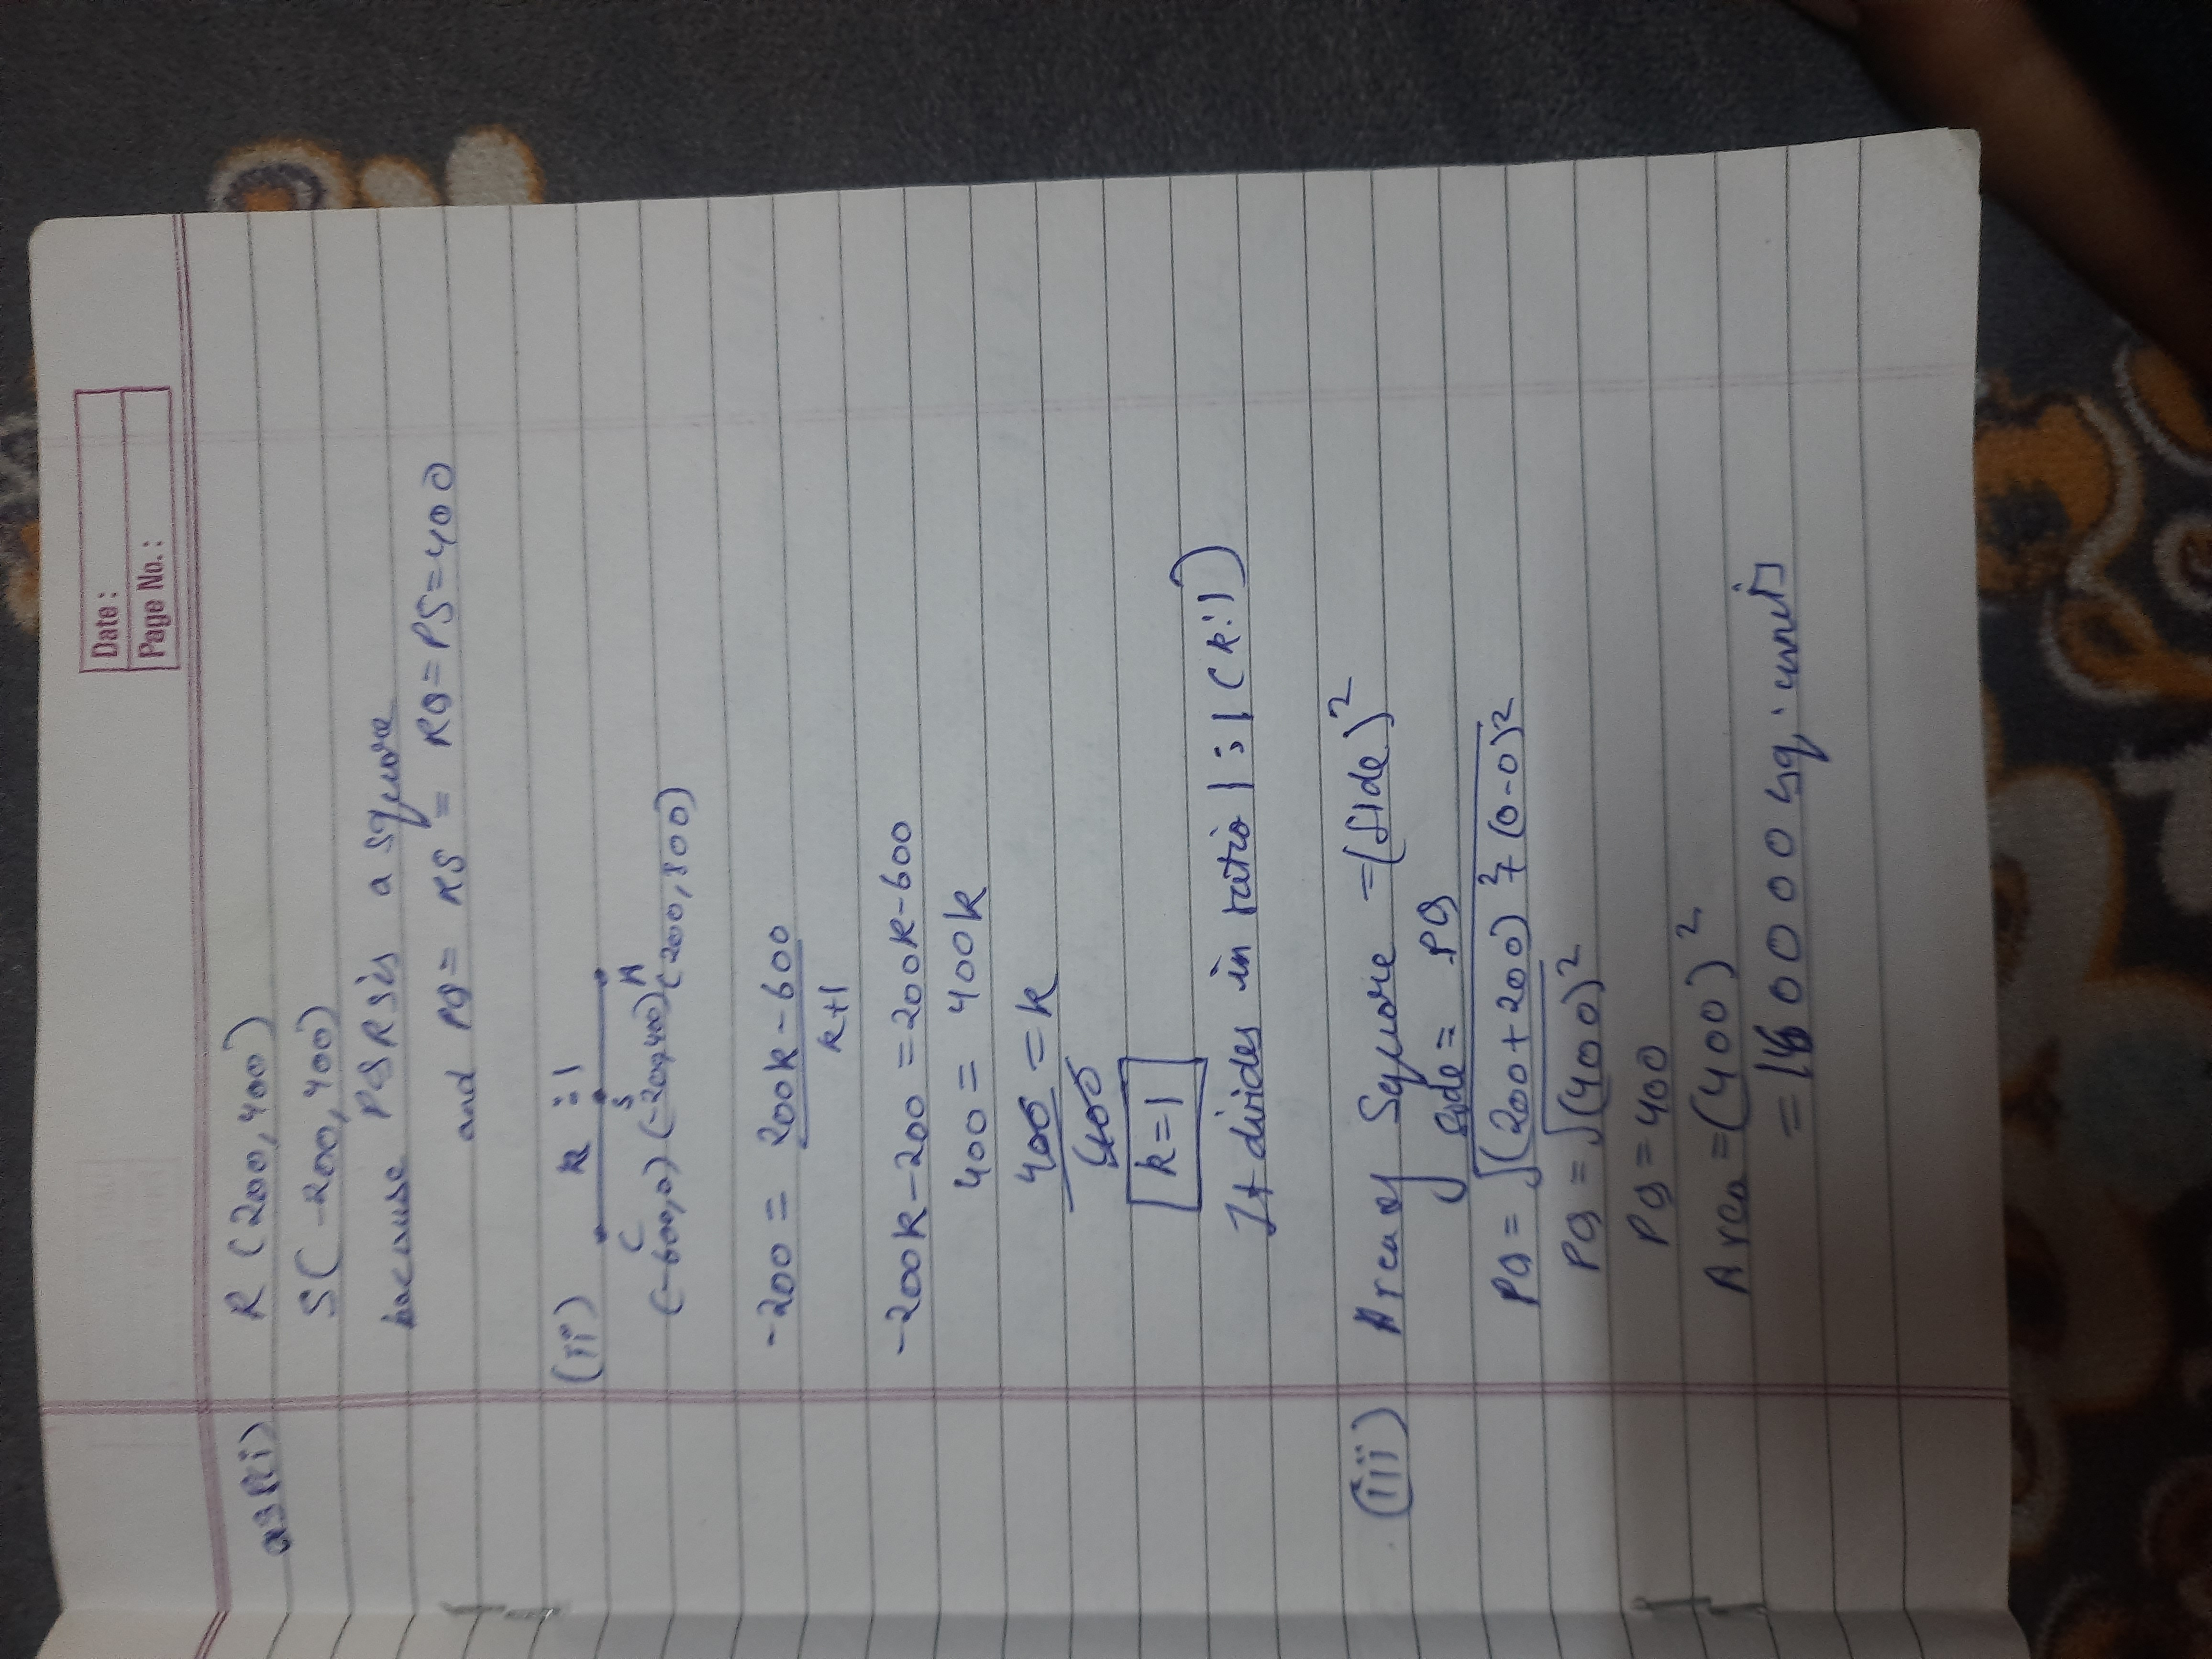 Date :
Page No. :
R (200, 400)
S(-200, 400)
because PQRS is a square
and PQ = RS = RQ = PS = 400
(ii) k : 1
C S A
(-600,0) (-200,400) (200,800)
-200 = 200k-600
k+1
-200k-200 = 200k-600
400 = 400k
400 = k
400
k=1
It divides in ratio 1:1 (k:1)
(iii) Area of Square = (side)²
side = PQ
PQ = √(200+200)²+(0-0)²
PQ = √(400)²
PQ = 400
Area = (400)²
= 160000 sq. units